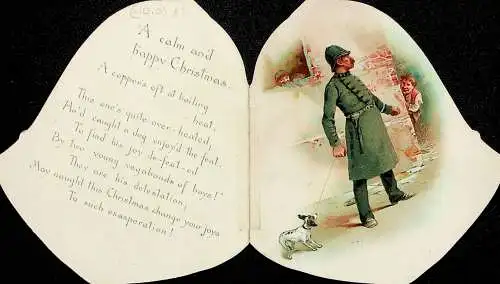 A calm and
happy Christmas.
A copper's oft at boiling
heat,
This one's quite over-heated,
He'd caught a dog enjoy'd the feat,
To find his joy de-feat-ed
By two young vagabonds of boys!
They are his detestation!
May nought this Christmas change your joys
To such exasperation!